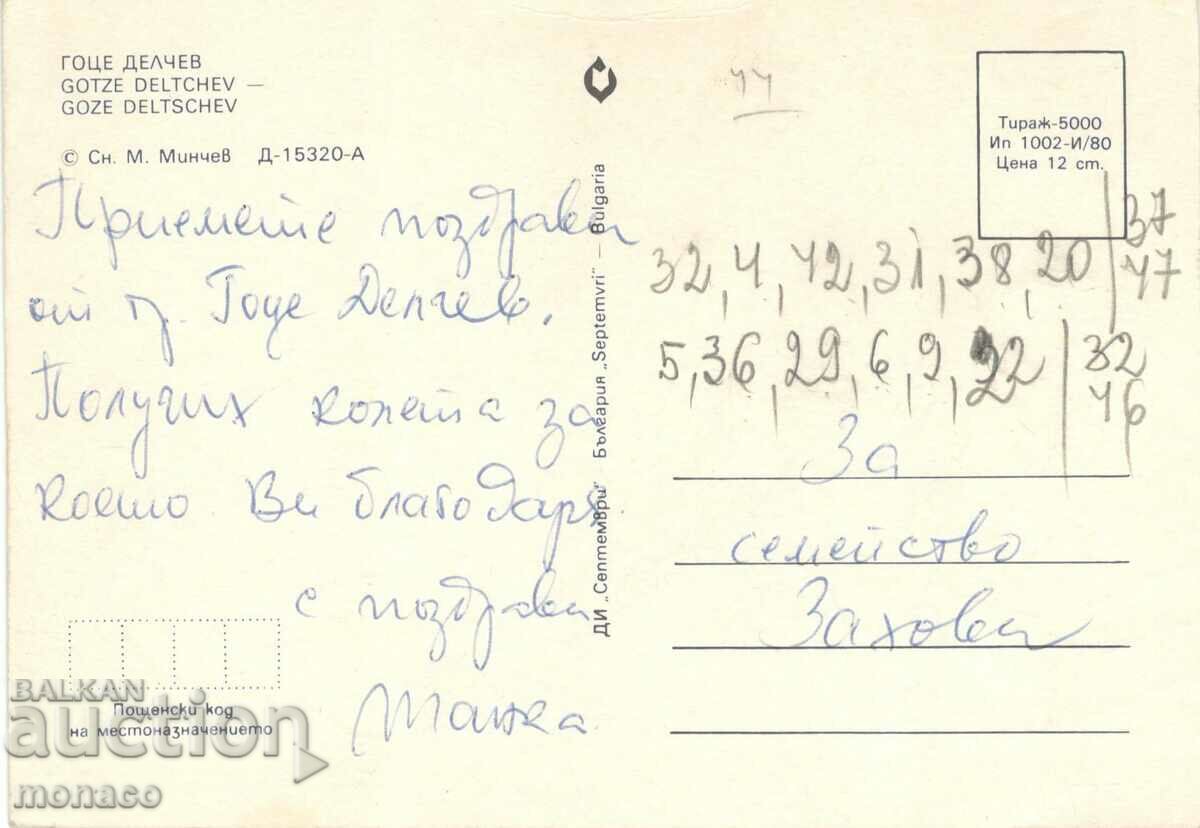 ГОЦЕ ДЕЛЧЕВ
GOTZE DELTCHEV —
GOZE DELTSCHEV
© Сн. М. Минчев Д-15320-А
Приемете поздрави
от гр. Гоце Делчев.
Получих колета за
което Ви благодаря
с поздрави
Пощенски код
на местоназначението
ДИ „Септември" — България „Septemvri" — Bulgaria
Тираж-5000
Ип 1002-И/80
Цена 12 ст.
32, 4, 42, 31, 38, 20 | 37
47
5, 36, 29, 6, 9, 22 | 32
46
За
семейство
Захови
BALKAN
auction
monaco